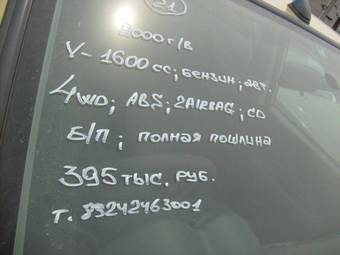 21
2000 г/в
V-1600 сс; бензин; авт.
4WD; ABS; 2AIRBAG; CD
Б/П; полная пошлина
395 тыс. руб.
т. 89242463001